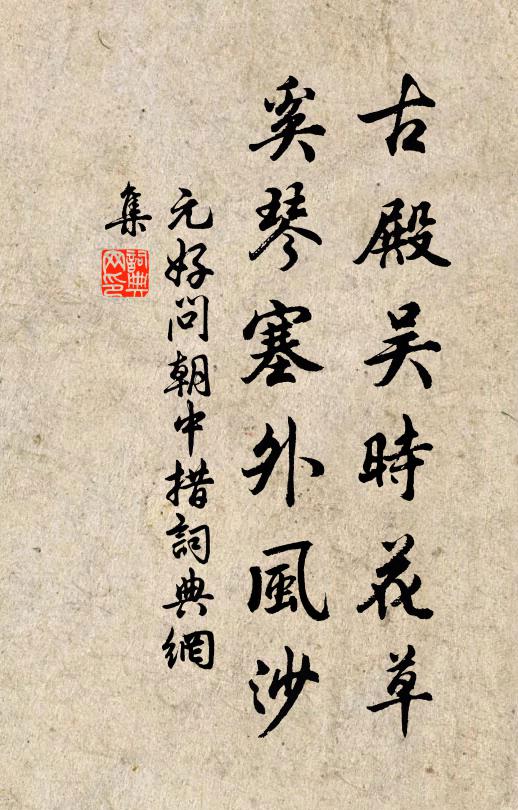 古殿吴時花草
奚琴塞外風沙
元好问朝中措詞典網
集
詞典
网印